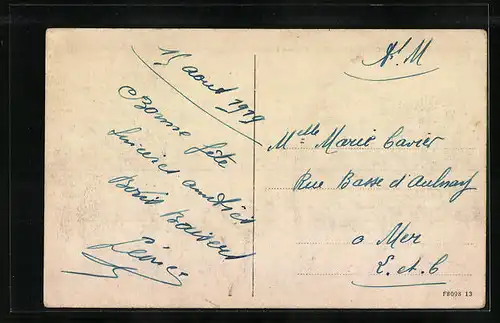 15 aout 1919
Bonne fête
sincères amitiés
Bons Baisers
F. M
Melle Marie Cavier
Rue Basse d'Aulnay
a Mer
L. et. C
F8098 13